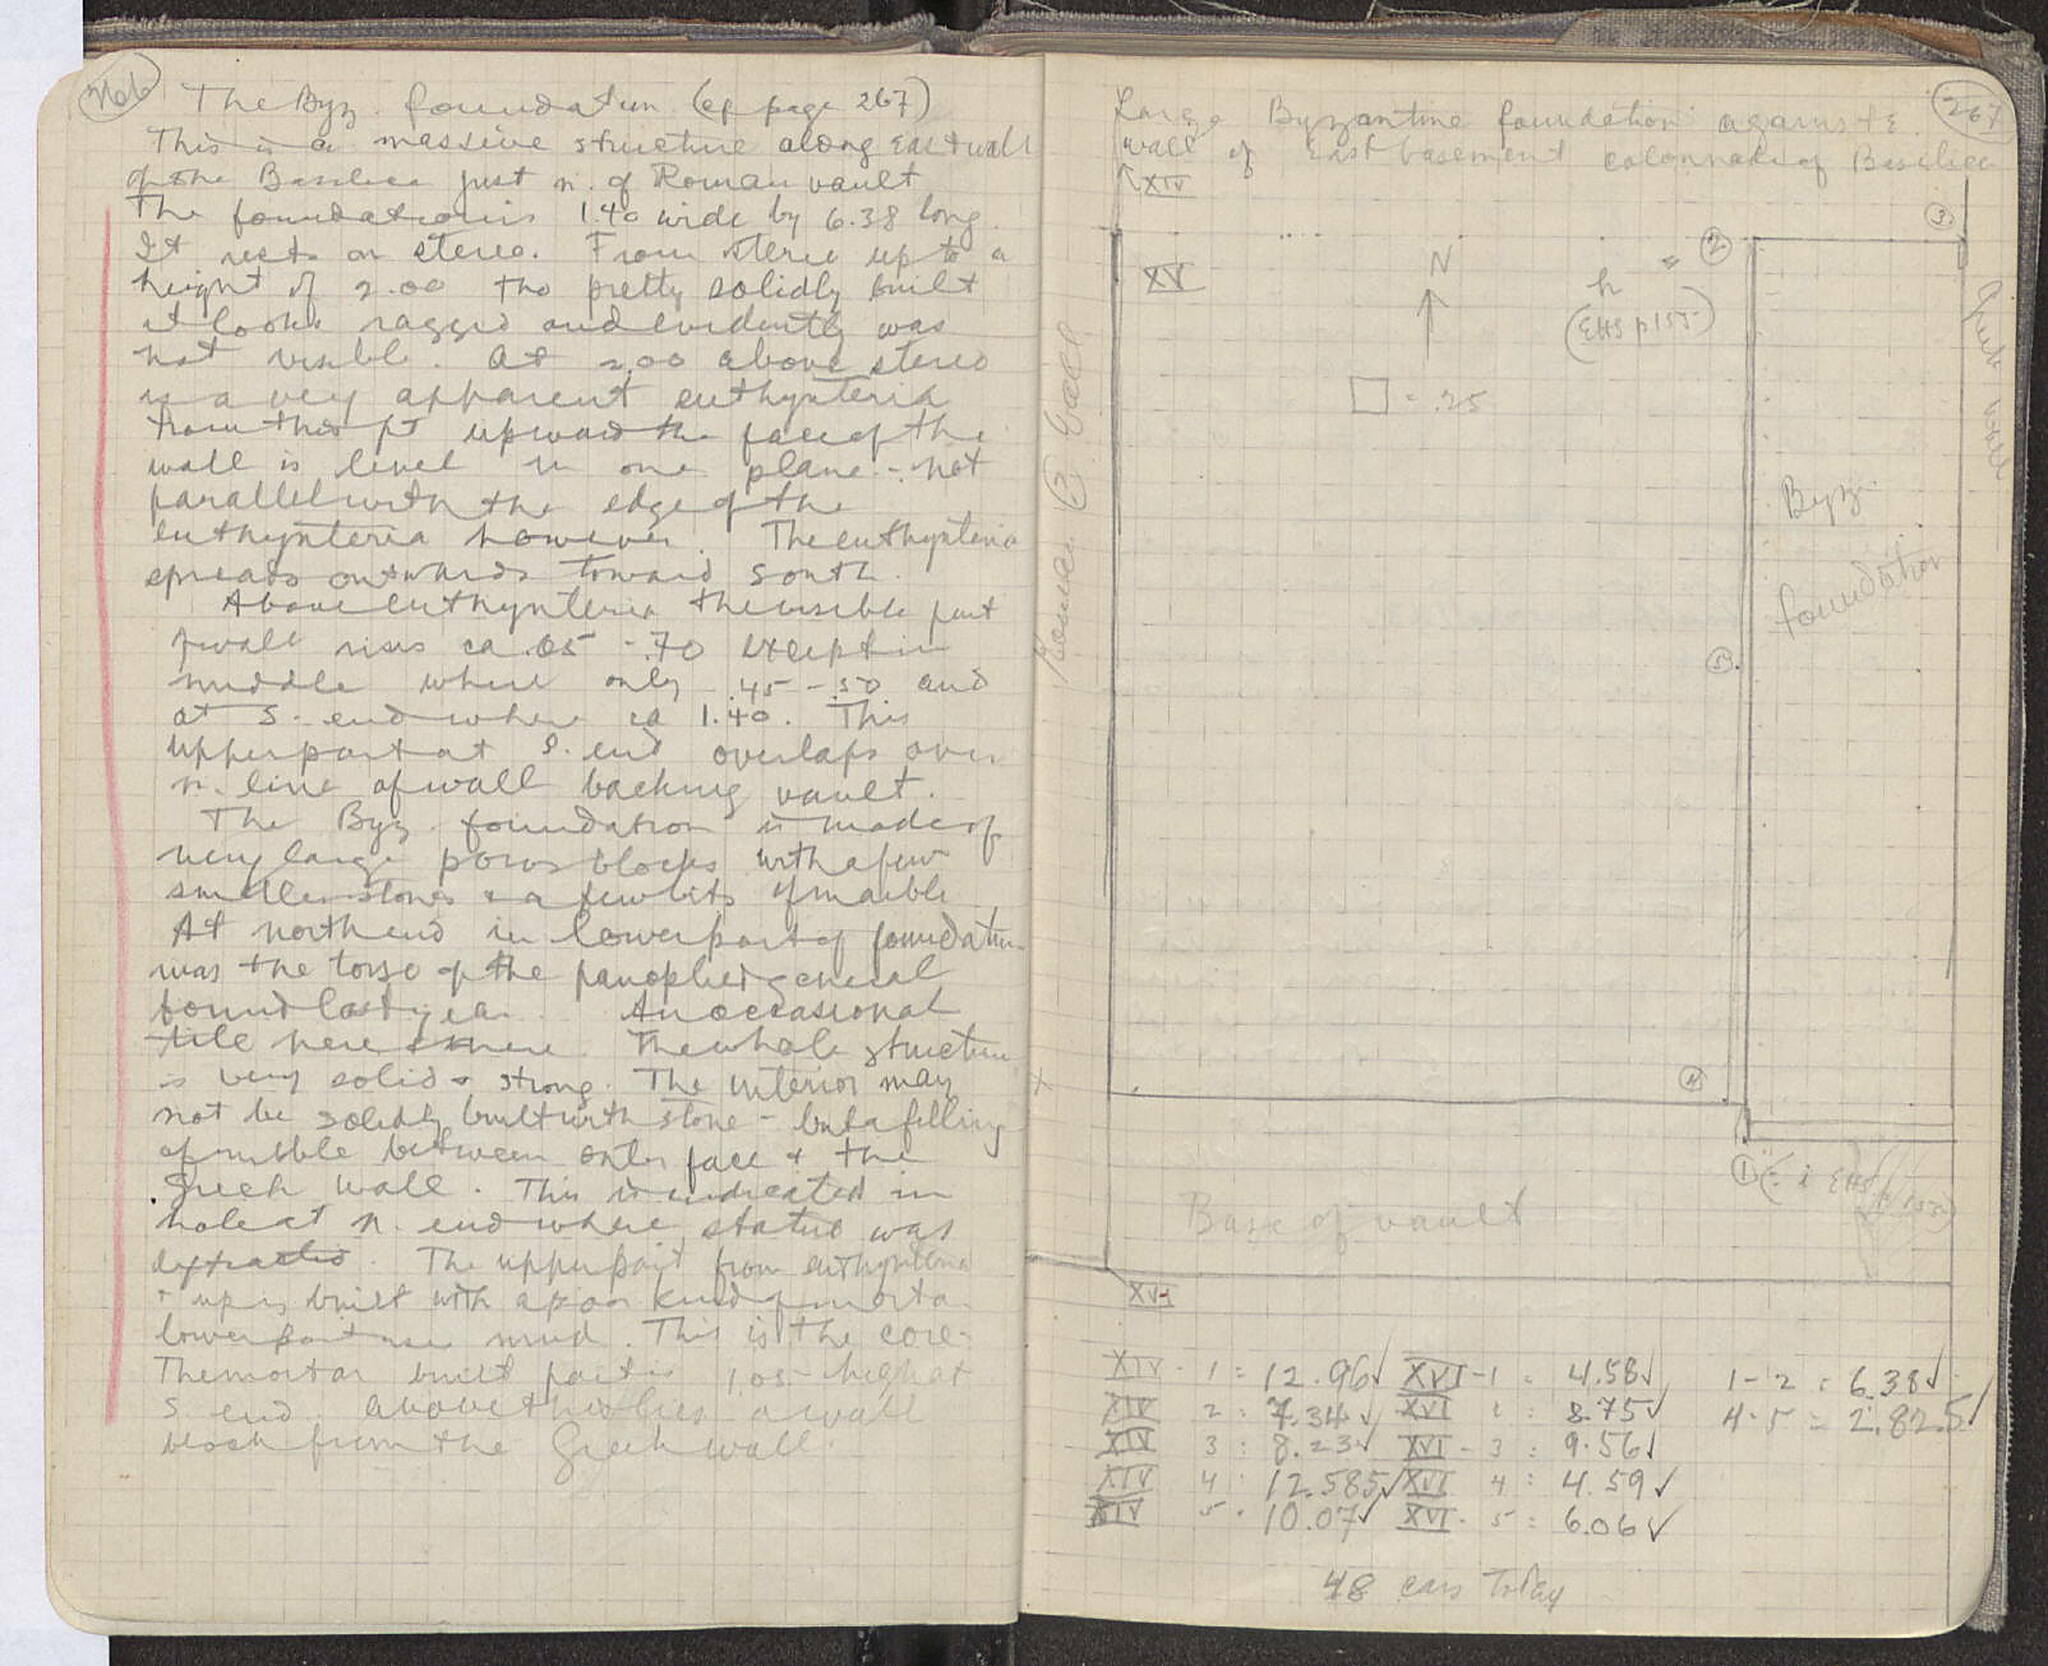 266
The Byz. foundation (cf page 267)
This is a massive structure along East wall
of the Basilica just n. of Roman vault
The foundation is 1.40 wide by 6.38 long.
It rests on stereo. From stereo up to a
height of 2.00 tho pretty solidly built
it looks ragged and evidently was
not visible. At 2.00 above stereo
is a very apparent euthynteria
From this pt upward the face of the
wall is level in one plane - not
parallel with the edge of the
euthynteria however. The euthynteria
spreads outwards toward south.
Above euthynteria the visible part
of wall rises ca .65 - .70 except in
middle where only .45 - .50 and
at S. end where ca 1.40. This
upper part at S. end overlaps over
n. line of wall backing vault.
The Byz. foundation is made of
very large poros blocks with a few
smaller stones & a few bits of marble
At north end in lower part of foundation
was the torso of the panoplied general
found last year. An occasional
tile here & there. The whole structure
is very solid & strong. The interior may
not be solidly built with stone - but a filling
of rubble between outer face & the
Greek wall. This is indicated in
hole at n. end where statue was
extracted. The upper part from euthynteria
& up is built with a poor kind of mortar
lower part use mud. This is the core.
The mortar built part is 1.05 high at
S. end. Above this lies a wall
block from the Greek wall.
267
Large Byzantine foundation against E.
wall of East basement colonnade of Basilica
XIV
XV
N
h = 2
(EHS p 155)
3
□ = .25
Roman B. Wall
Greek wall
Byz.
foundation
5
4
1 (= i EHS p
Base of vault
XVI
XIV - 1 = 12.96✓ XVI - 1 = 4.58✓ 1-2 = 6.38✓
XIV 2 = 7.34✓ XVI 2 = 8.75✓ 4-5 = 2.82.5✓
XIV 3 = 8.23✓ XVI - 3 = 9.56✓
XIV 4 = 12.585✓ XVI 4 = 4.59✓
XIV 5 = 10.07✓ XVI - 5 = 6.06✓
48 cars today